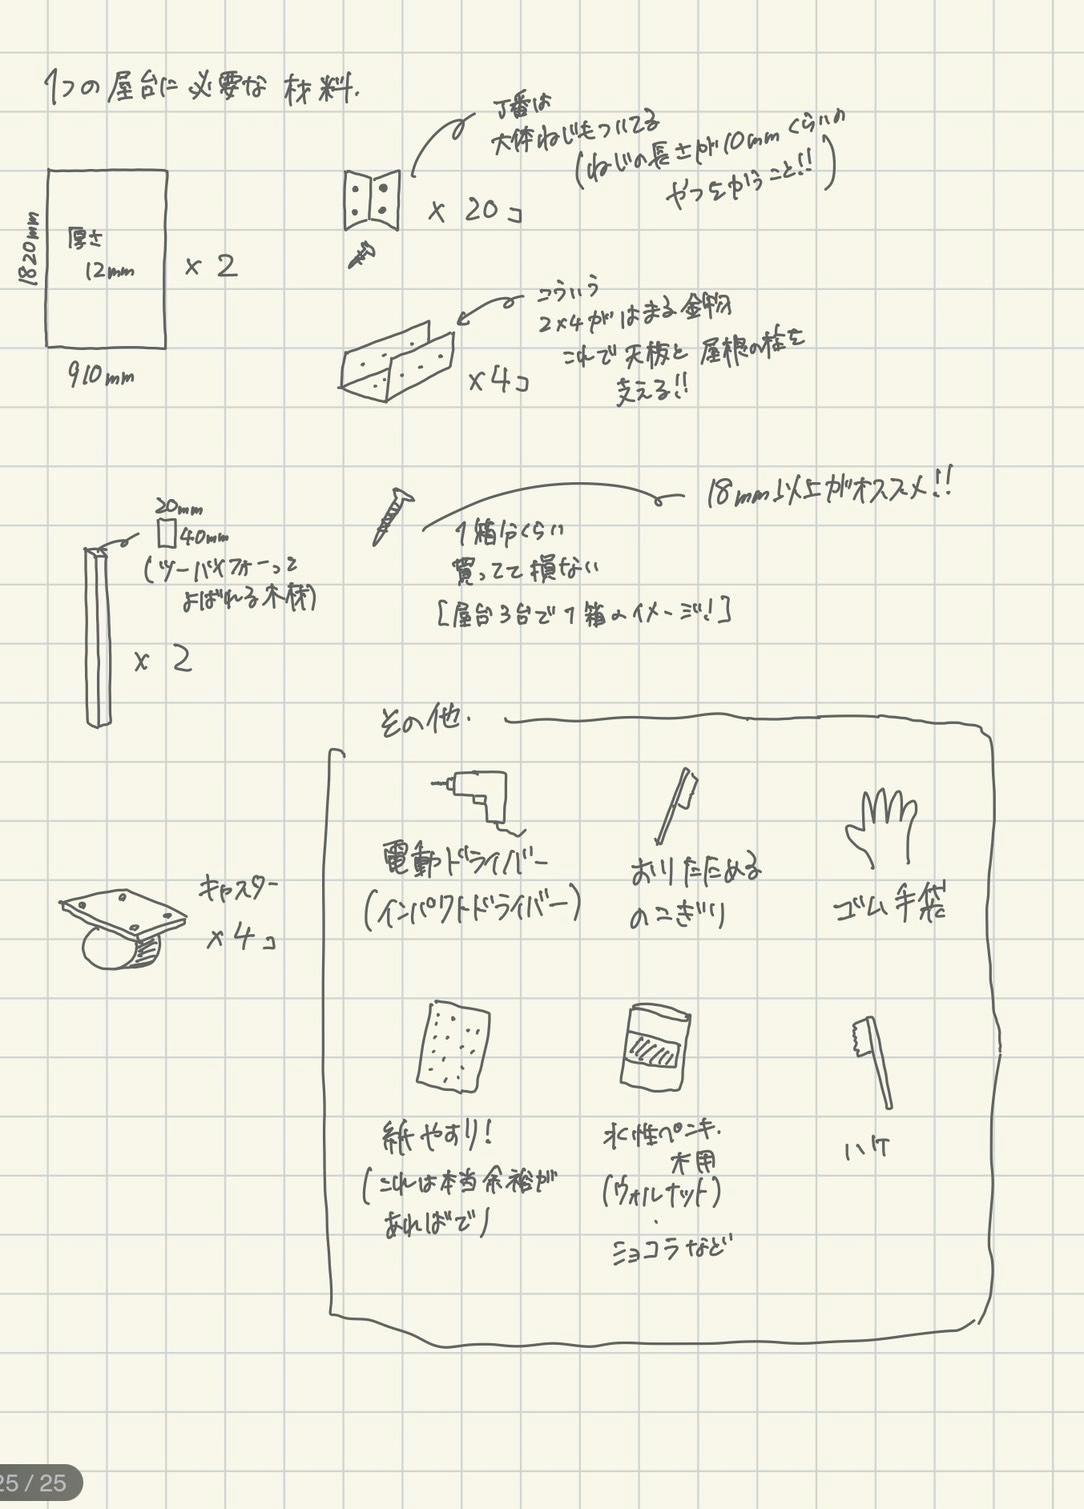 1つの屋台に必要な材料.
1820mm
厚さ
12mm
x 2
910mm
丁番は
大体ねじもついてる
(ねじの長さが10mmくらいの
やつをかうこと!!)
x 20コ
こういう
2x4がはまる金物
これで天板と屋根の柱を
支える!!
x4コ
20mm
40mm
(ツーバイフォーって
よばれる木材)
x 2
18mm以上がオススメ!!
1箱分くらい
買ってて損ない
[屋台3台で1箱のイメージ!]
キャスター
x 4コ
その他.
電動ドライバー
(インパクトドライバー)
おりたためる
のこぎり
ゴム手袋
紙やすり!
(これは本当余裕が
あればで)
水性ペンキ.
木用
(ウォルナット)
・
ショコラなど
ハケ
25 / 25